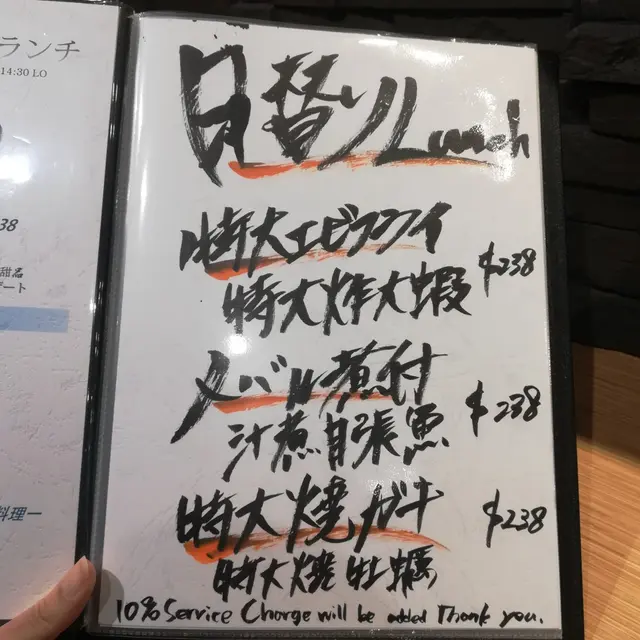 ランチ
14:30 LO
38
甜品
ート
料理一
日替りLunch
特大エビフライ
特大炸大蝦
$238
メバル煮付
汁煮目張魚
$238
特大焼ガキ
特大燒牡蠣
$238
10% Service Charge will be added Thank you.